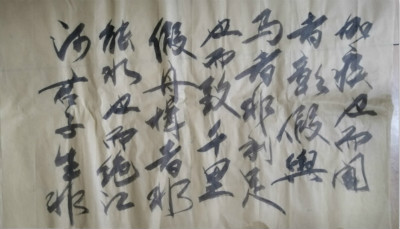 加疾也而闻
者彰假舆
马者非利足
也而致千里
假舟楫者非
能水也而绝江
河君子生非